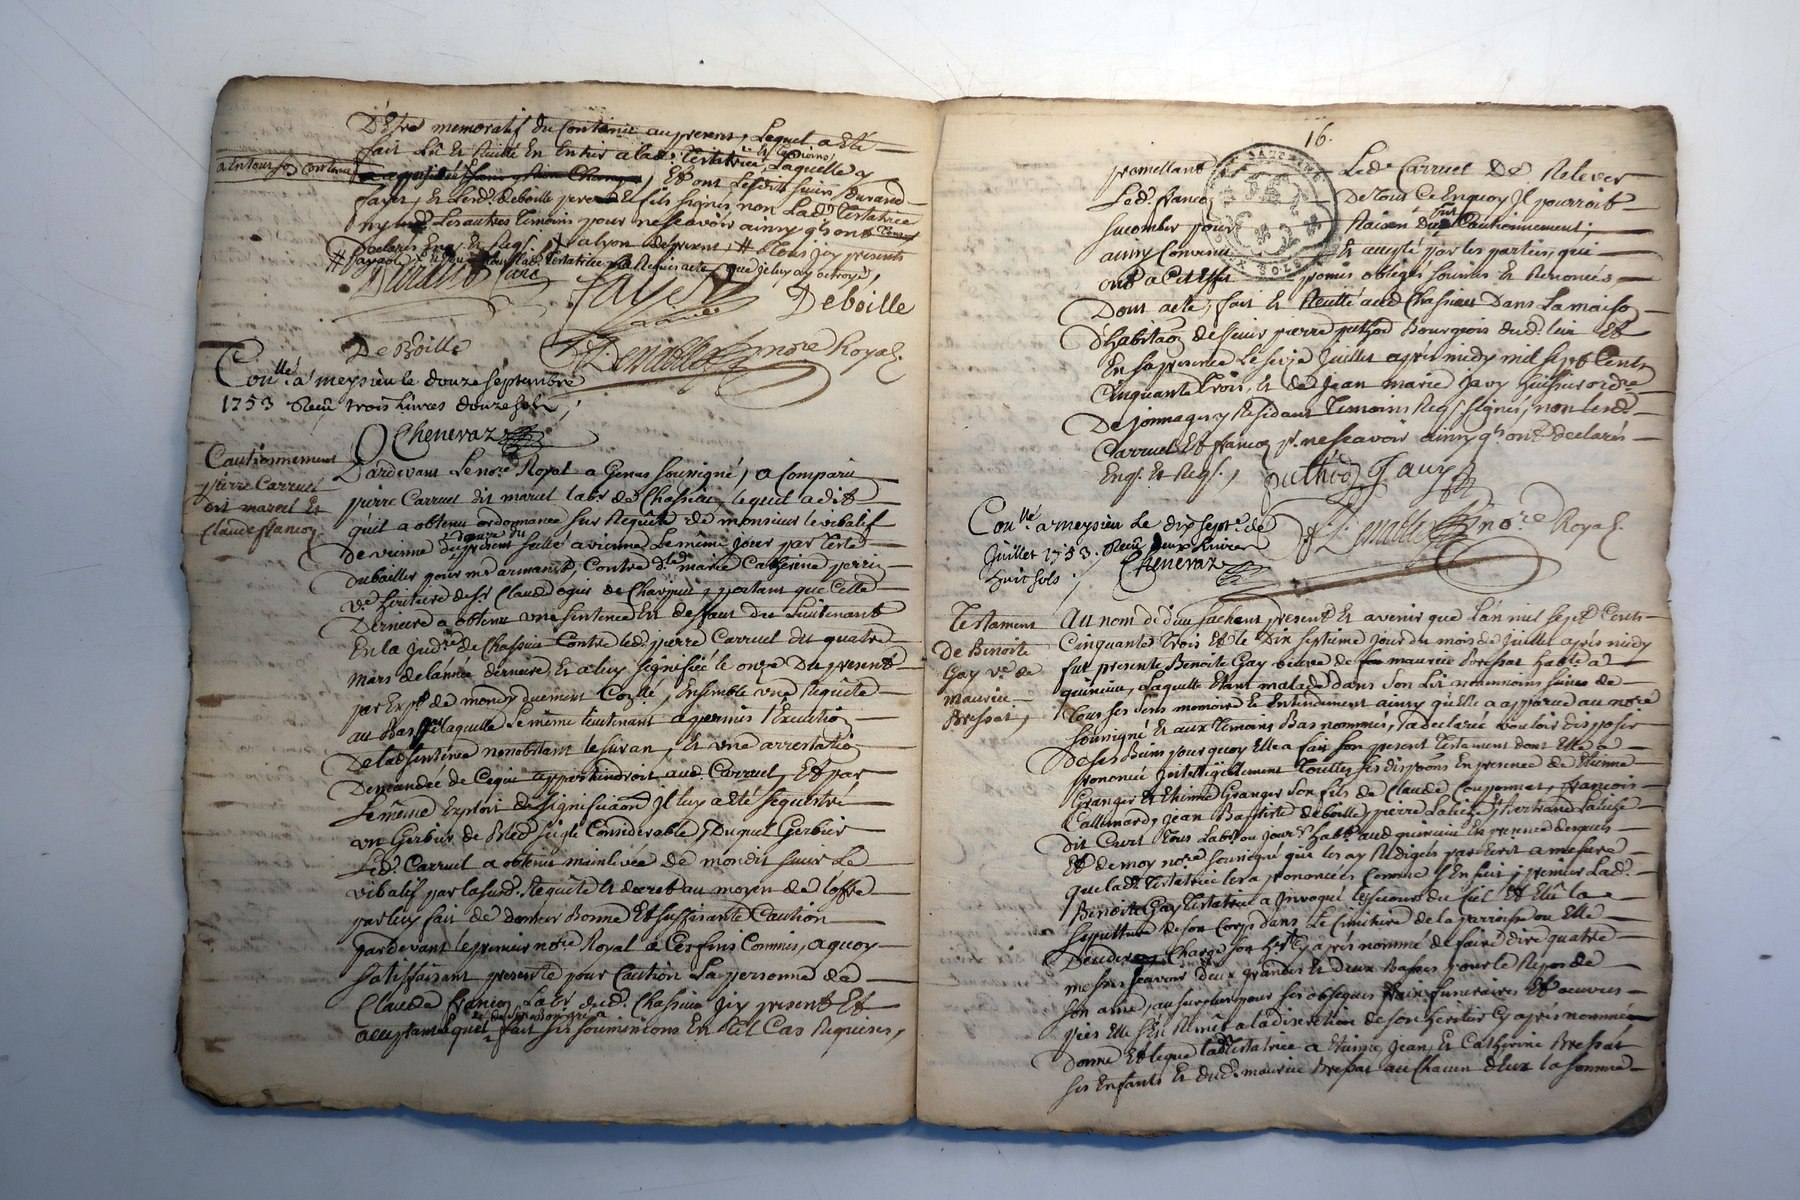 D'Etre memoratif du Contenu au present, Lequel a Eté
fait Lû Et Recitté En Entier a lad. Testatrice Laquelle y
a Entour son Contenu
Et ont Lesdits sieurs Durand
fayet, Et Lesd. deboille pere Et fils signés non Lad. Testatrice
ny Les autres Temoins pour ne scavoir ainsy qls ont
declarés Enq. Et Req.
Durand
fayet
Deboille
De Boille
nore Royal.
Conllé a meysieu le douze septembre
1753 Reçu trois Livres douze sols,
Chenevaz
Cautionnement
pierre Carruel
dit marcel Et
Claude françon
Pardevant Le nore Royal a Genas soussigné, a Comparu
pierre Carruel dit marcel labr de Chassieu lequel a dit
qu'il a obtenu ordonnance sur Requête de monsieur le vibalif
De vienne du douze du present scellé a vienne Le même jour par
dubailler pour mr armanet, Contre dlle marie Catherine perrin
ve heritiere de sr Claude ogier de Charpieu, portant que Cette
Derniere a obtenu une sentence En deffaut du Lieutenant
En la Judre de Chassieu Contre led. pierre Carruel du quatre
mars de l'année derniere, Et a luy signiffiée le onze du present
par Expt de mondy Conllé, Ensemble une Requête
au Bas de laquelle Le même Lieutenant a permis l'Execution
De lad. sentence nonobstant le suran, Et une arrestation
Demandée de Ce qui appartiendroit aud. Carruel, Et par
Le même Exploit de signification Il luy a eté sequestré
un Gerbier de Bled seigle Considerable, Duquel Gerbier
Led. Carruel a obtenu mainlevée de mondit sieur Le
vibalif par la susd. Requête Et decret au moyen de l'offre
par luy fait de donner Bonne Et suffisante Caution
pardevant le premier nore Royal a Ces fins Commis, a quoy
satisfaisant presente pour Caution La personne de
Claude françon Labr dud. Chassieu Icy present Et
acceptant Lequel fait ses soumissions En tel Cas Requises,
16.
promettant Led. Carruel De Relever
Led. françon De tous Ce Enquoy Il pourroit
sucomber pour Raison Dud. Cautionnement,
ainsy Convenu Et accepté par les parties, qui
ont a Cet Effet promis obligés soumis Et Renoncés,
Dont acte, fait Et Recitté aud. Chassieu Dans La maison
D'habitaon de sieur pierre puthod Bourgeois dud. lieu Et
En sa presence Le seize Juillet après midy mil sept Cents
Cinquante trois, Et de Jean marie Javy huissier ordre
De jonnages y Residant Temoins Reqs signés, non lesd.
Carruel Et françon pr ne scavoir ainsy qls ont declarés
Enqs. Et Reqs.,
puthod Javy
nore Royal.
Conllé a meysieu Le dix sept de
Juillet 1753. Reçu deux Livres
huit sols.
Chenevaz
Testament
De Benoite
Gay ve. de
maurice
Bressat,
Au nom de dieu sachent present Et avenir que L'an mil sept Cents
Cinquante trois Et le Dix septieme Jour du mois de Juillet après midy
fut presente Benoite Gay veuve de maurice Bressat habte a
quincieu, Laquelle Etant malade dans son Lit neammoins saine de
Tous ses sens memoire Et Entendement ainsy qu'elle a apparue au nore
soussigné Et aux Temoins Bas nommés, a declaré vouloir disposer
De ses Biens pourquoy Elle a fait son present Testament dont Elle a
prononcé Inteligiblement Touttes ses dispoons En presence de Etienne
Granger Et Etienne Granger son fils de Claude Couponnet, françois
Callemard, Jean Baptiste deboille, pierre Laliche, Bertrand Laliche
dit Curt Tous Labrs ou Jourrs habts aud. quincieu En presence desquels
Et de moy nore soussigné qui les ay Redigés par Ecrit a mesure
que lad. Testatrice les a prononcées Comme s'En suit; premier Lad.
Benoite Gay Testatrice a Invoqué le secours du Ciel Et Elû la
sepulture de son Corps dans Le Cimetiere de la parroisse ou Elle
Decedera, Charge son hert Cy après nommé de faire dire quatre
messes scavoir deux grandes Et deux Basses pour le Repos de
son ame, au surplus pour ses obseques frais funeraires Et oeuvres
pies Elle s'En Remet a la discretion de son heritier Cy après nommé
donne Et legue lad. Testatrice a Etienne, Jean, Et Catherine Bressat
ses Enfants Et dud. maurice Bressat au Chacun d'Eux la somme